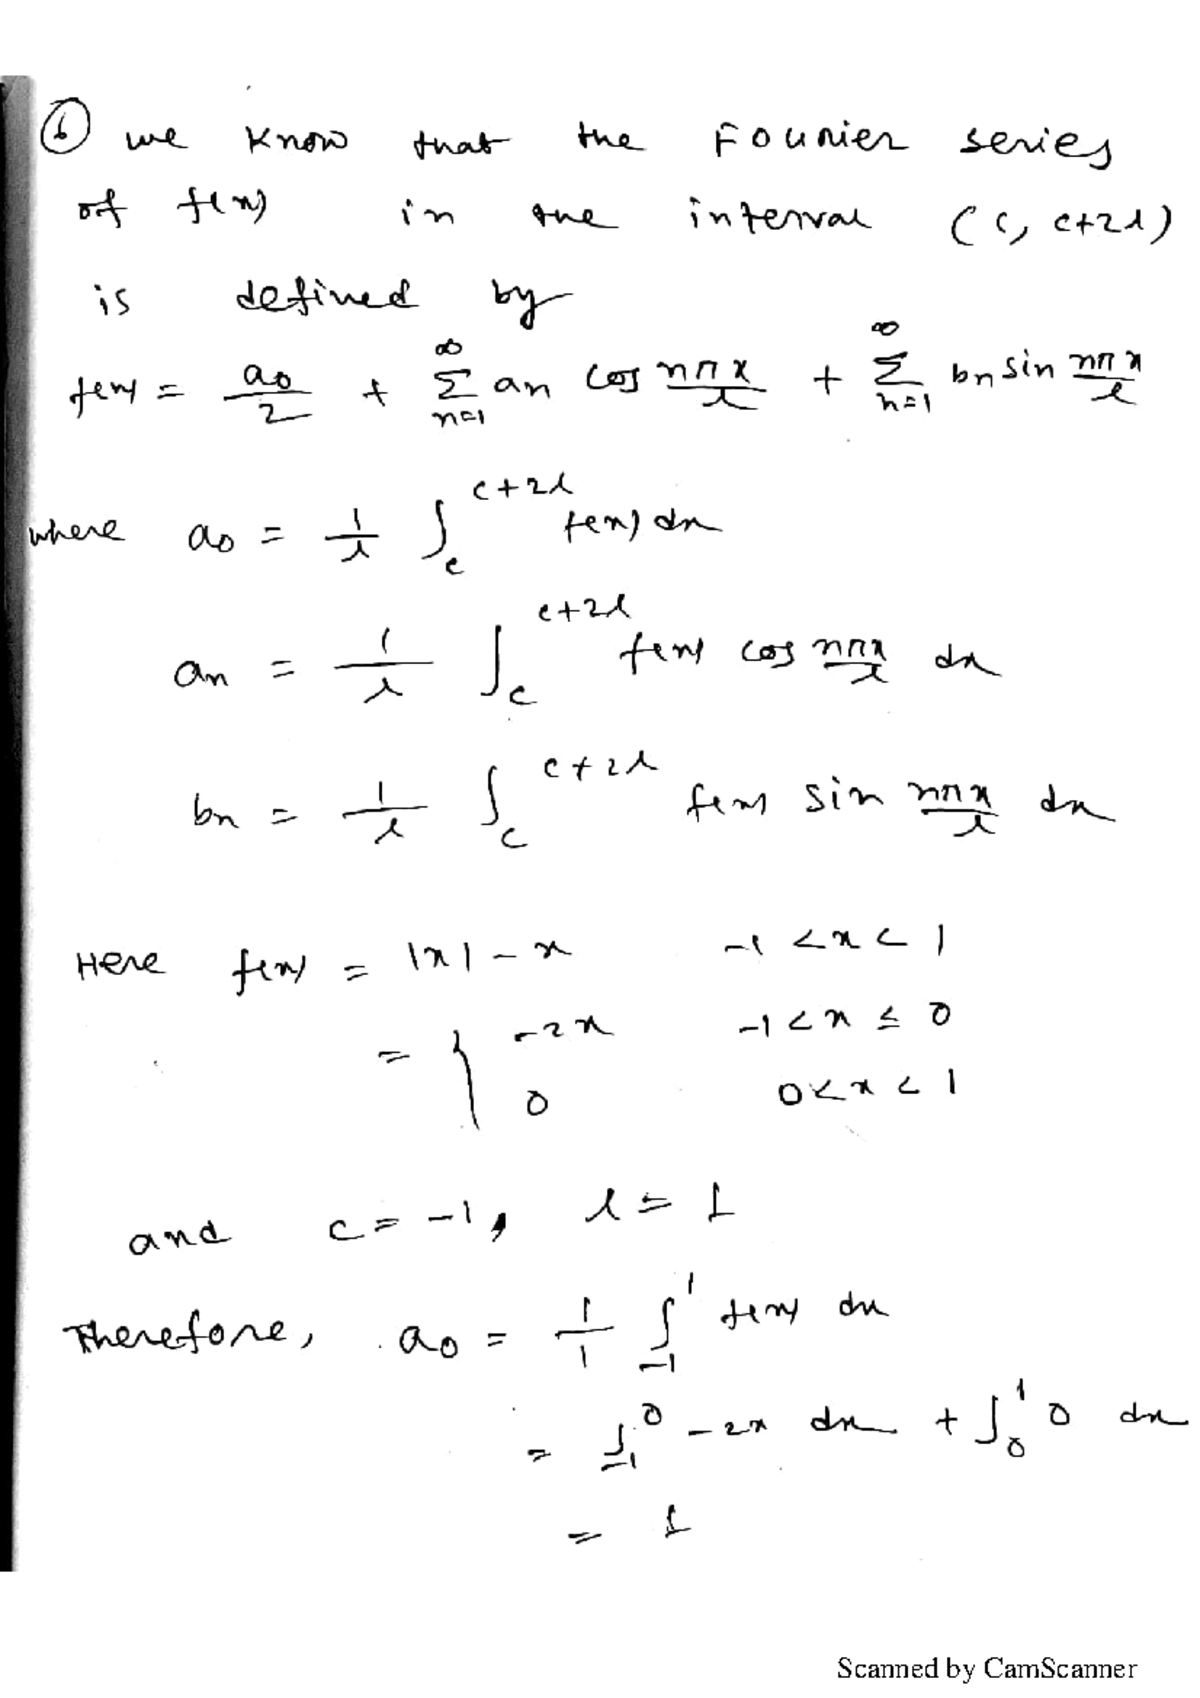 ⑥ we know that the Fourier series
of f(x) in the interval (c, c+2l)
is defined by
f(x) = a0/2 + ∞∑n=1 an cos nπx/l + ∞∑n=1 bn sin nπx/l
where a0 = 1/l ∫c^c+2l f(x) dx
an = 1/l ∫c^c+2l f(x) cos nπx/l dx
bn = 1/l ∫c^c+2l f(x) sin nπx/l dx
Here f(x) = |x| - x -1 < x < 1
= { -2x -1 < x ≤ 0
0 0 < x < 1
and c = -1, l = 1
Therefore, a0 = 1/1 ∫-1^1 f(x) dx
= ∫-1^0 -2x dx + ∫0^1 0 dx
= 1
Scanned by CamScanner